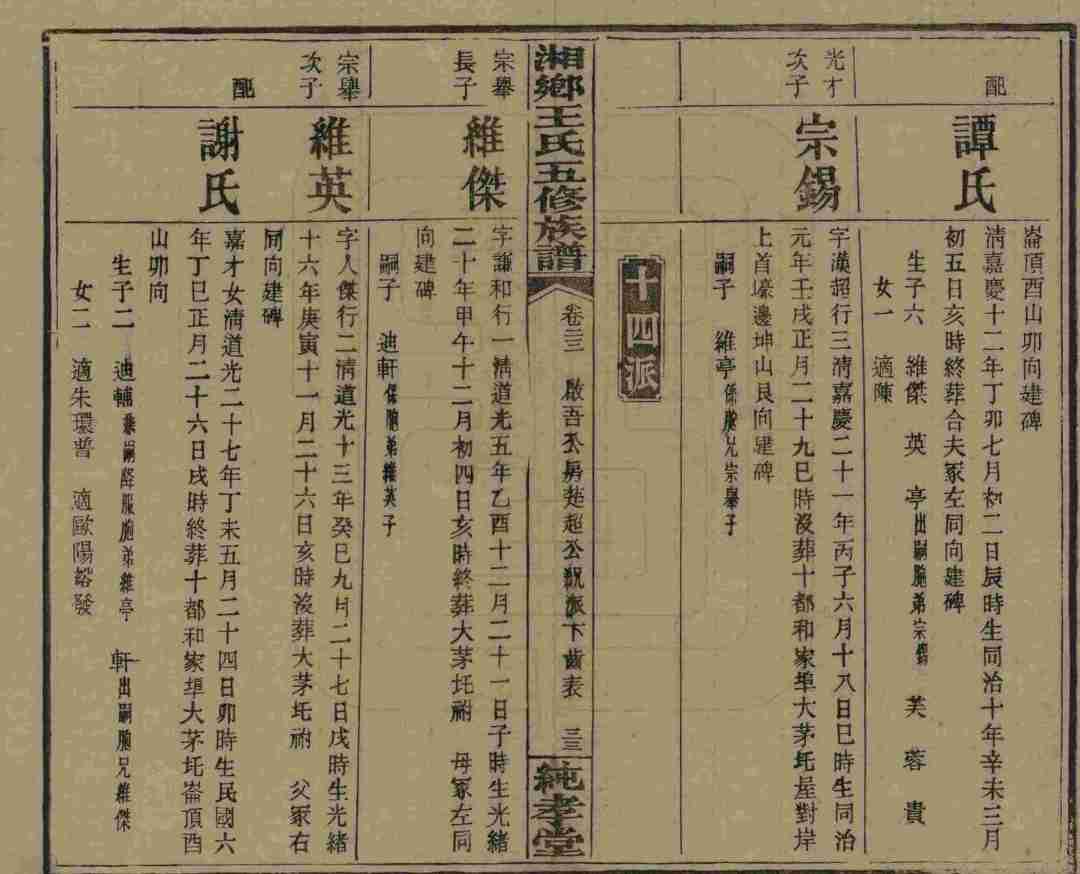 崙頂酉山卯向建碑
配
譚氏
清嘉慶十二年丁卯七月初二日辰時生同治十年辛未三月
初五日亥時終葬合夫冢左同向建碑
生子六 維傑 英 亭出嗣胞弟宗錫 芙 蓉 貴
女一 適陳
光才
次子
宗錫
字漢超行三清嘉慶二十一年丙子六月十八日巳時生同治
元年壬戌正月二十九巳時沒葬十都和家埠大茅坵屋對岸
上首壕邊坤山艮向建碑
嗣子 維亭係胞兄宗舉子
十四派
湘鄉王氏五修族譜
卷三三 啟吾公房楚超公派下齒表 三三
純孝堂
宗舉
長子
維傑
字謙和行一清道光五年乙酉十二月二十一日子時生光緒
二十年甲午十二月初四日亥時終葬大茅坵祔 母冢左同
向建碑
嗣子 迪軒係胞弟維英子
宗舉
次子
維英
字人傑行二清道光十三年癸巳九月二十七日戌時生光緒
十六年庚寅十一月二十六日亥時沒葬大茅坵祔 父冢右
同向建碑
配
謝氏
嘉才女清道光二十七年丁未五月二十四日卯時生民國六
年丁巳正月二十六日戌時終葬十都和家埠大茅坵崙頂酉
山卯向
生子二 迪輔兼嗣降服胞弟維亭 軒出嗣胞兄維傑
女二 適朱環普 適歐陽裕發